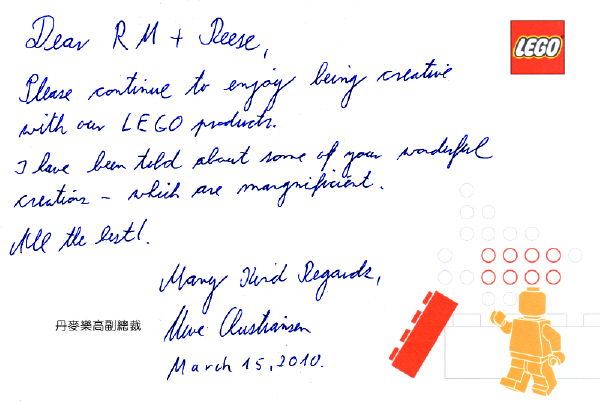 Dear R M + Reese,
LEGO
Please continue to enjoy being creative
with our LEGO products.
I have been told about some of your wonderful
creations - which are mangnificient.
All the best!
Many Kind Regards,
丹麥樂高副總裁
March 15, 2010.